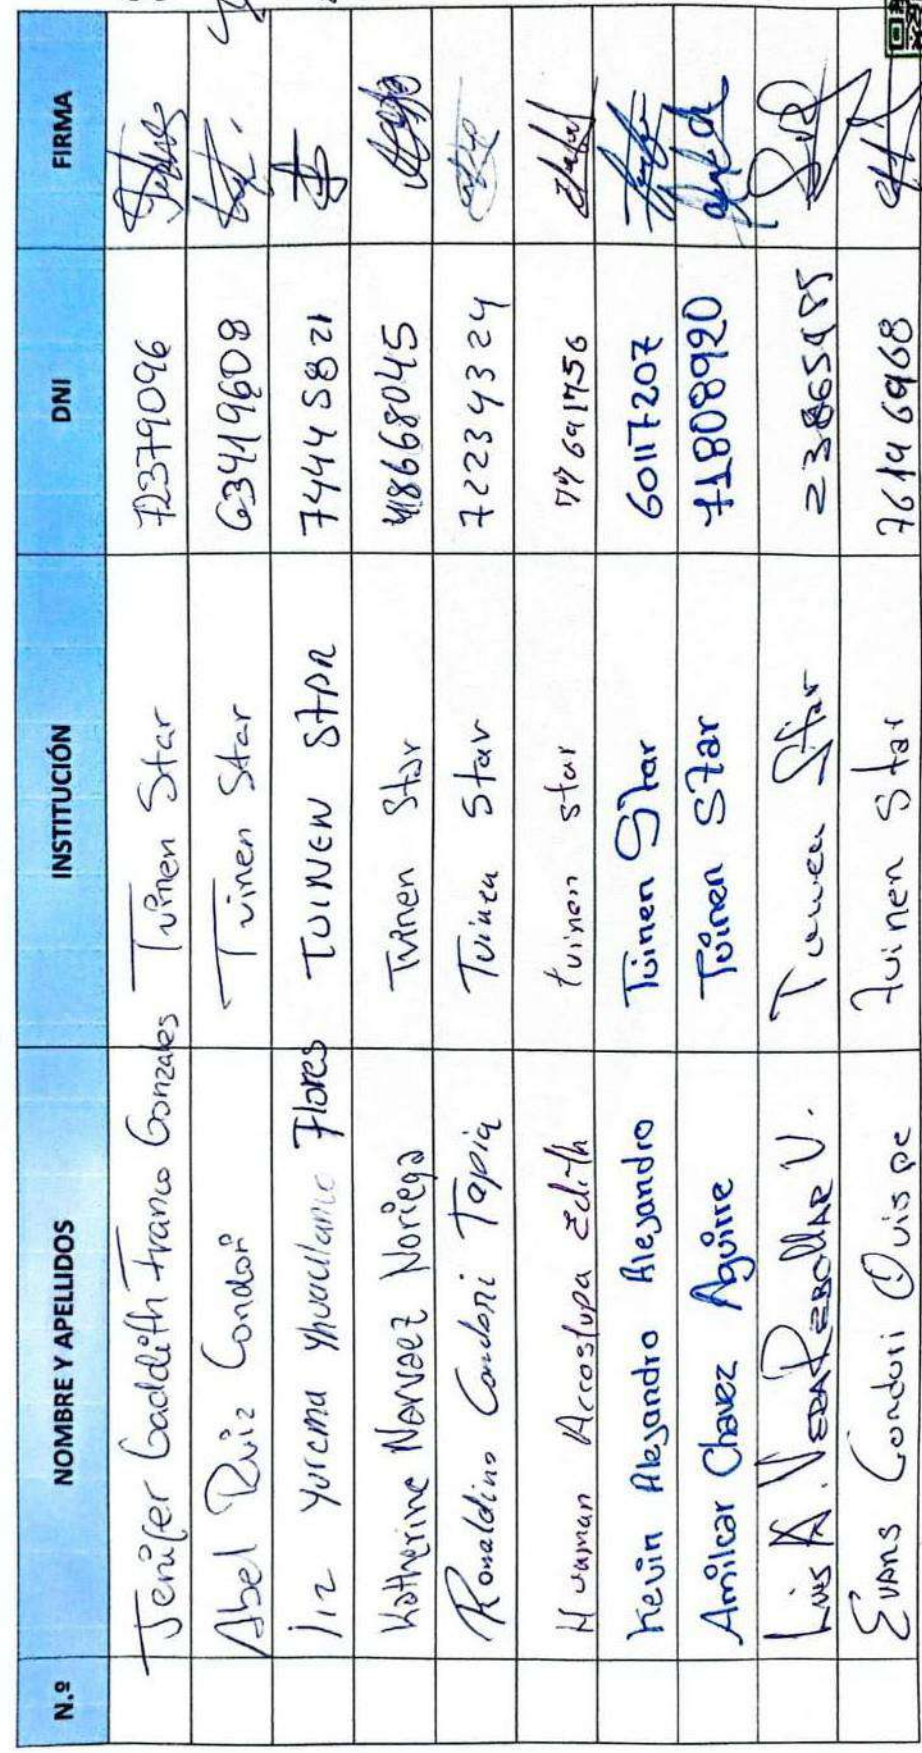 N.º NOMBRE Y APELLIDOS INSTITUCIÓN DNI FIRMA
Jenifer Gaddith Franco Gonzales Tuinen Star 72379096
Abel Ruiz Condori Tuinen Star 63419608
Yurema Flores TUINEN STAR 74445821
Katherine Narvaez Noriega Tuinen Star 48668045
Ronaldino Condori Tapia Tuinen Star 72234324
Huaman Accostupa Edith tuinen star 77691756
Kevin Alejandro Alejandro Tuinen Star 60117207
Amilcar Chavez Aguirre Tuinen Star 71808920
Luis A. VERA REBOLLAR V. Tuinen Star 23865985
EVANS Condori Quispe Tuinen Star 76146968